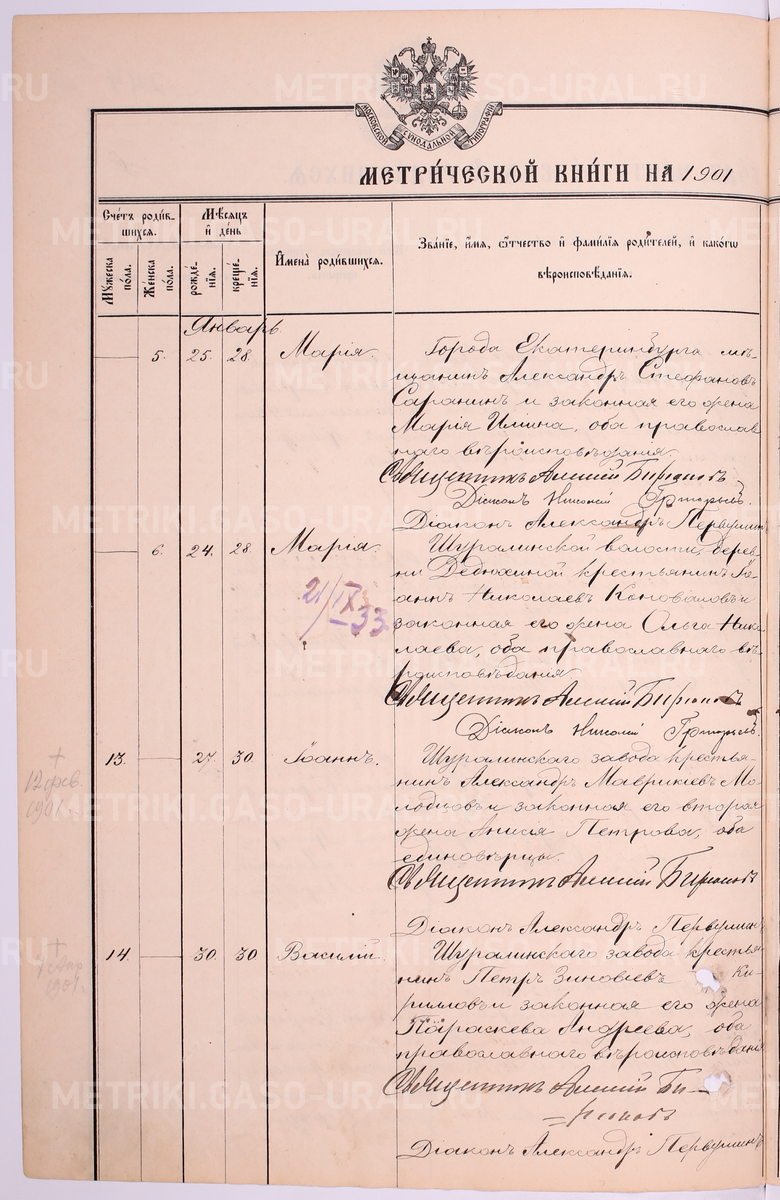 МОСКОВСКОЙ СѴНОДАЛЬНОЙ ТИПОГРАФІИ
МЕТРИ́ЧЕСКОЙ КНИ́ГИ НА 1901
Сче́тъ роди́в-
шихся.
Мѣ́сяцъ
и҆ де́нь
И҆мена̀ роди́вшихся.
Зва́нїе, и҆́мя, ѻ҆́тчество и҆ фами́лїя роди́телей, и҆ како́гѡ
вѣроисповѣ́данїя.
Мꙋ́жеска
по́ла.
Же́нска
по́ла.
рожде́-
нїя.
креще́-
нїя.
Январь.
5. 25. 28. Марія.
Города Екатеринбурга мѣ-
щанинъ Александръ Стефановъ
Саранинъ и законная его жена
Марія Ильина, оба православ
наго вѣроисповѣданія.
Священникъ Алексій
Діаконъ Николай Григорьевъ.
Діаконъ Александръ Первушинъ
6. 24. 28. Марія.
Шуралинской волости, дерев-
ни Дедюхиной крестьянинъ Іо-
аннъ Николаевъ Коноваловъ и
законная его жена Ольга Нико
лаева, оба православнаго вѣ-
роисповѣданія
21/IX
—33
Священникъ Алексій
Діаконъ Николай Григорьевъ.
13. 27. 30. Іоаннъ.
Шуралинскаго завода крестья-
нинъ Александръ Маврикіевъ Мо-
лодцовъ и законная его вторая
жена Анисія Петрова, оба
единовѣрцы.
†
12 фев.
1901 г.
Священникъ Алексій
Діаконъ Александръ Первушинъ
14. 30. 30. Василій.
Шуралинскаго завода крестья
нинъ Петръ Зиновіевъ Ки-
рилловъ и законная его жена
Параскева Андреева, оба
православнаго вѣроисповѣданія
†
1901.
Священникъ Алексій
Діаконъ Александръ Первушинъ
METRIKI.GASO-URAL.RU